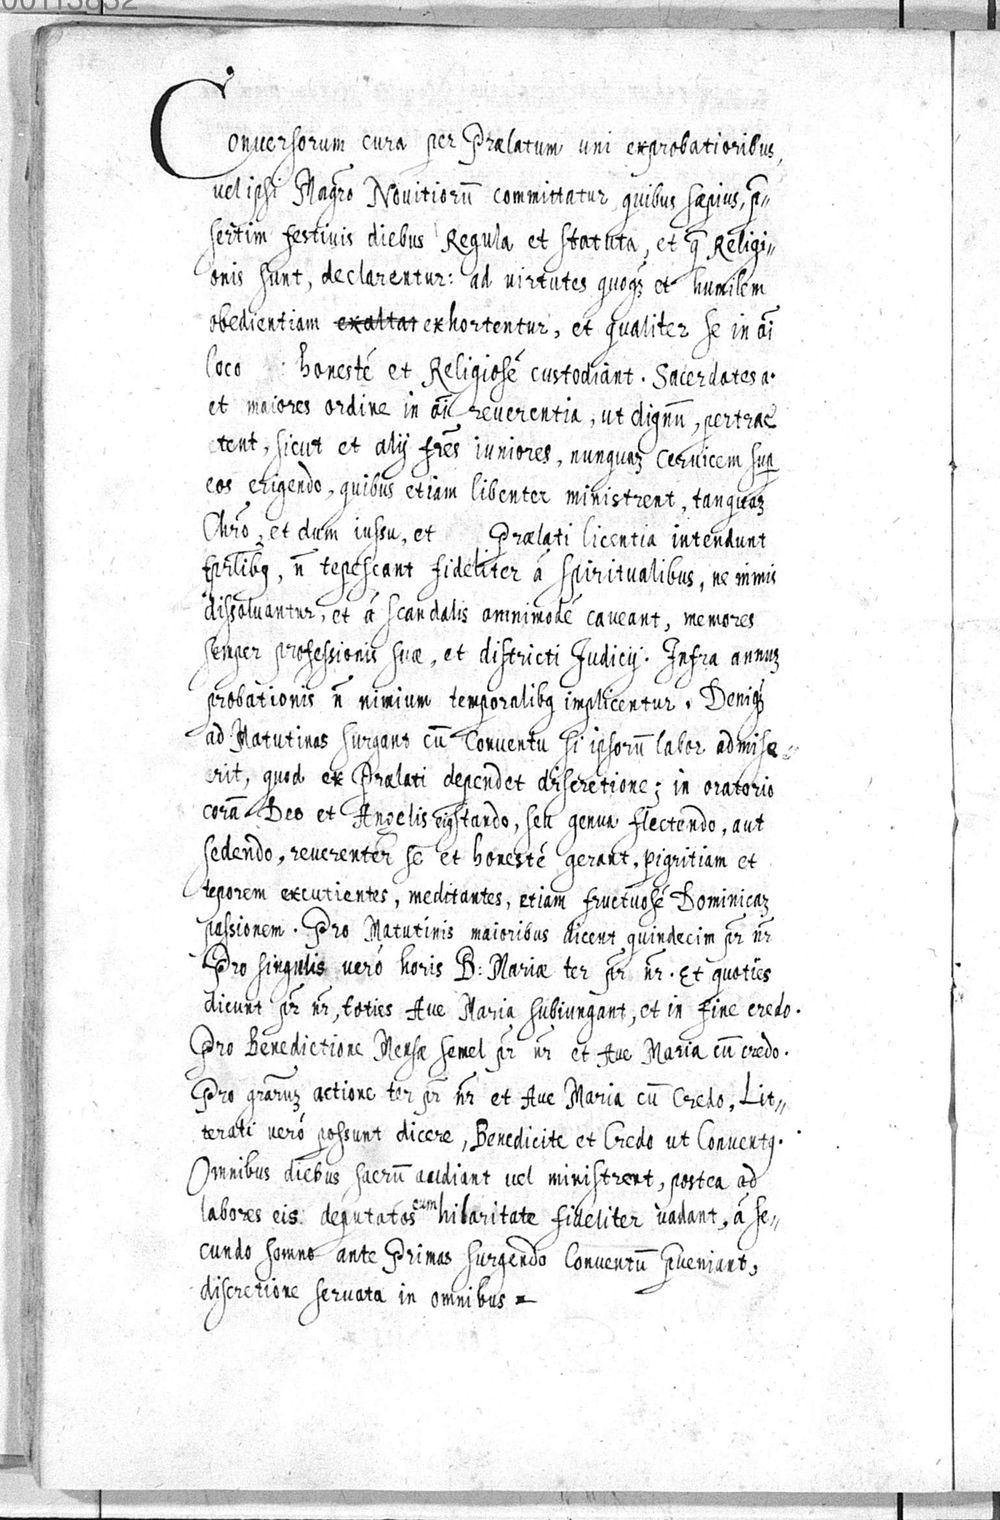 00113832
Conuersorum cura per Prælatum uni exprobatioribus,
uel ipsi Magr̄o Nouitiorū committatur, quibus sæpius, p̄„
sertim festiuis diebus Regula et statuta, et q̄ Religi„
onis sunt, declarentur: ad uirtutes quoqȝ et humilem
obedientiam exaltat exhortentur, et qualiter se in ōi
loco : honesté et Religiosé custodiant. Sacerdotes a.
et maiores ordine in ōi reuerentia, ut dignū, pertrac
ctent, sicut et alij frēs iuniores, nunquaȝ ceruicem sup̱
eos erigendo, quibus etiam libenter ministrent, tanquaȝ
Chrō, et dum iussu, et Prælati licentia intendunt
tp̄rlibꝯ, n̄ tepescant fideliter á spiritualibus, ne nimis
dissoluantur, et á scandalis omnimodé caueant, memores
semper professionis suæ, et districti Judicij. Infra annuȝ
probationis n̄ nimium temporalibꝯ implicentur. Deniqȝ
ad Matutinas surgant cū Conuentu si ipsorū labor admise„
erit, quod ex Prælati dependet discretione; in oratorio
corā Deo et Angelis stando, seu genua flectendo, aut
sedendo, reuerenter se et honesté gerant, pigritiam et
teporem excutientes, meditantes, etiam fructuosé Dominicaȝ
passionem. Pro Matutinis maioribus dicent quindecim pr̄ nr̄
Pro singulis ueró horis B: Mariæ ter pr̄ nr̄. Et quoties
dicunt pr̄ nr̄, toties Aue Maria subiungant, et in fine credo.
Pro Benedictione Mensæ semel pr̄ nr̄ et Aue Maria cū credo.
Pro grāruȝ actione ter pr̄ nr̄ et Aue Maria cū Credo, Lit„
terati ueró possunt dicere, Benedicite et Credo ut Conuentꝯ.
Omnibus diebus sacrū audiant uel ministrent, postea ad
labores eis: deputatos cum hilaritate fideliter uadant, á se„
cundo somno ante Primas surgendo Conuentū p̄ueniant,
discretione seruata in omnibus